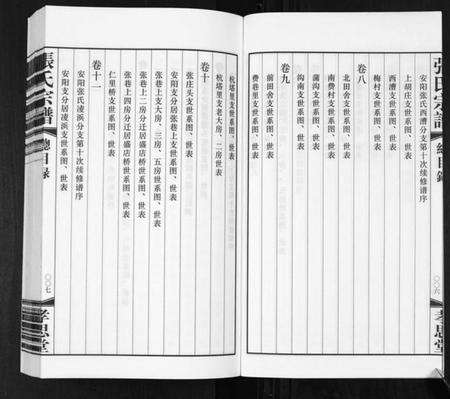 張氏宗譜
總目錄
〇〇六
孝思堂
安阳张氏西漕分支第十次续修谱序
上胡庄支世系图、世表
西漕支世系图、世表
梅村支世系图、世表
卷八
北田舍支世系图、世表
蒲沟支世系图、世表
沟南支世系图、世表
卷九
前田舍支世系图、世表
费巷里支世系图、世表
杭塔里支世系图、世表
杭塔里支老大房、二房世表
卷十
张庄头支世系图、世表
安阳支分居张巷上支世系图、世表
张巷上支大房、三房、五房世系图、世表
张巷上二房分迁居盛店桥世系图、世表
张巷上四房分迁居盛店桥世系图、世表
仁里桥支世系图、世表
卷十一
安阳张氏凌浜分支第十次续修谱序
安阳支分居凌浜支世系图、世表
張氏宗譜
總目錄
〇〇七
孝思堂